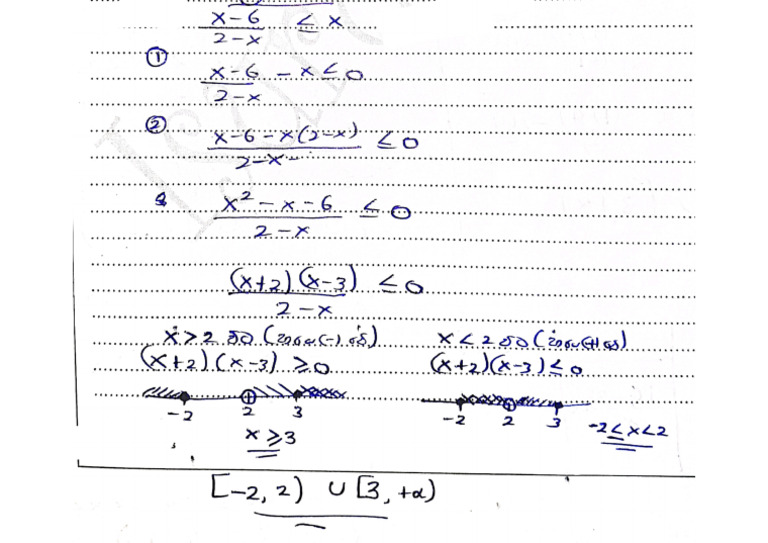 x-6/2-x ≤ x
① x-6/2-x - x ≤ 0
② x-6-x(2-x)/2-x ≤ 0
x² - x - 6/2-x ≤ 0
(x+2)(x-3)/2-x ≤ 0
x > 2 x < 2
(x+2)(x-3) ≥ 0 (x+2)(x-3) ≤ 0
-2 2 3 -2 2 3
x ≥ 3 -2 ≤ x < 2
[-2, 2) ∪ [3, +α)